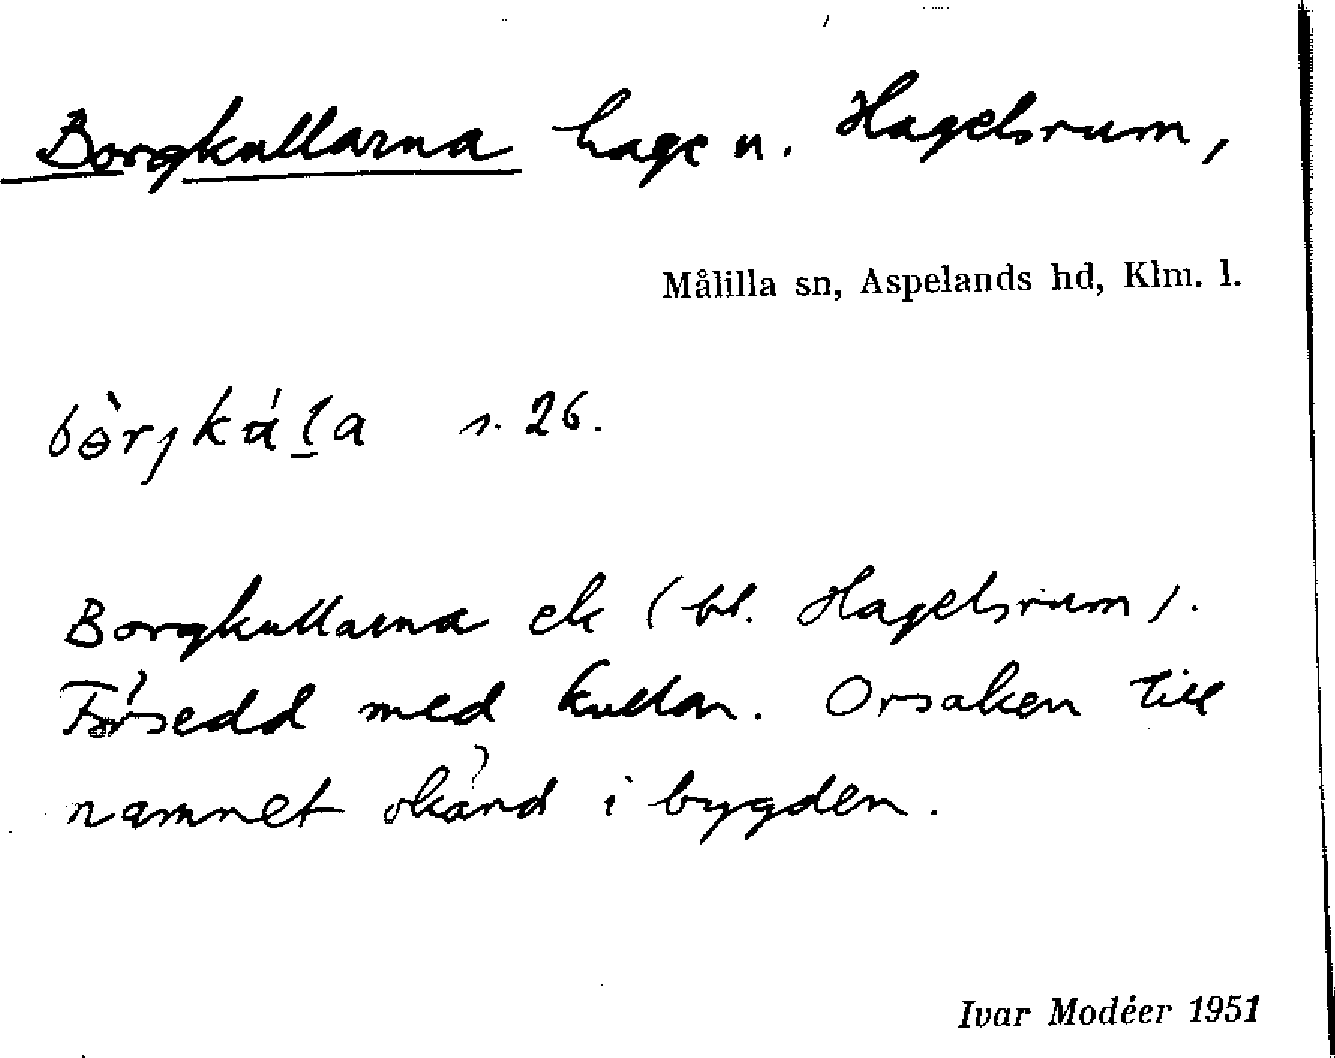 Borgkullarna hage u. Hagelsrum,
Målilla sn, Aspelands hd, Klm. l.
s. 26.
Borgkullarna ek (bl. Hagelsrum).
Försedd med kullar. Orsaken till
namnet okänd i bygden.
Ivar Modéer 1951